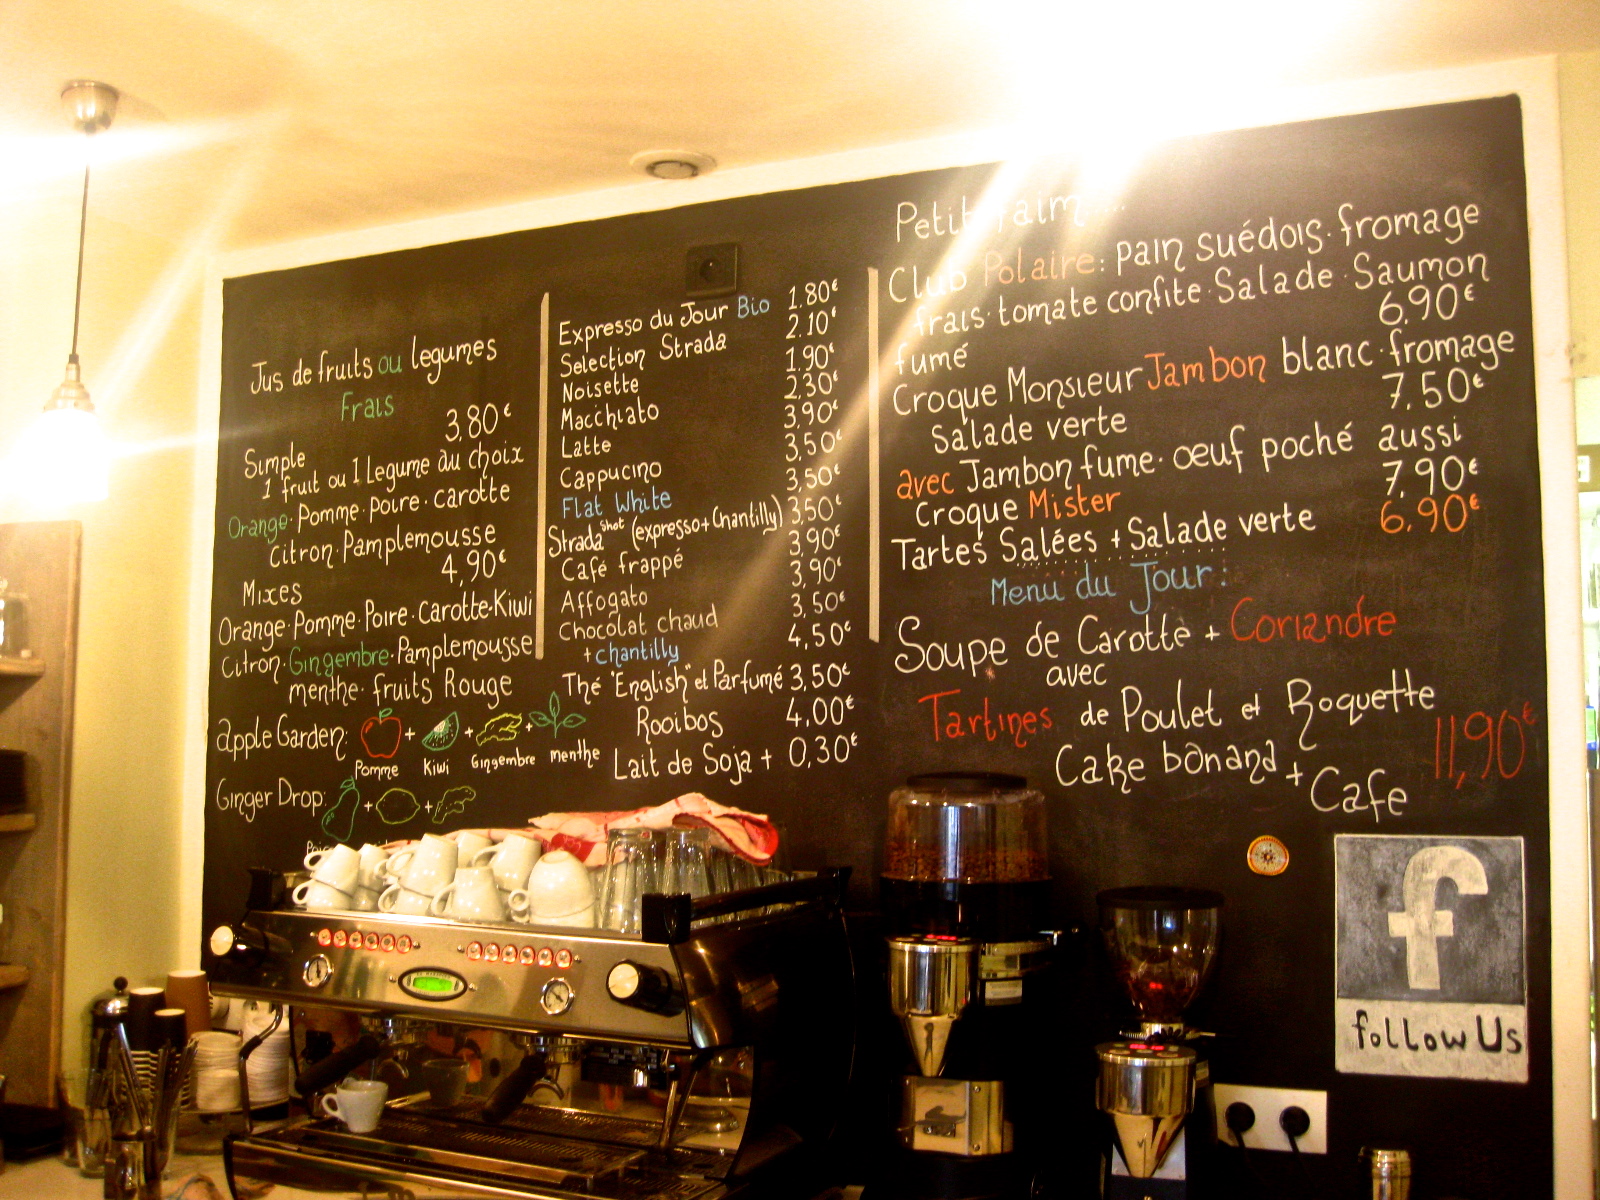 Jus de fruits ou legumes
Frais
3,80€
Simple
1 fruit ou 1 Legume au choix
Orange · Pomme · poire · carotte
citron · Pamplemousse
4,90€
Mixes
Orange · Pomme · Poire · carotte · Kiwi
citron · Gingembre · Pamplemousse
menthe · fruits Rouge
apple Garden: + + +
Pomme Kiwi Gingembre menthe
Ginger Drop: + +
Expresso du Jour Bio 1.80€
Selection Strada 2.10€
Noisette 1,90€
Macchiato 2,30€
Latte 3,90€
Cappucino 3,50€
Flat White 3,50€
Strada Shot (expresso + Chantilly) 3,50€
Café frappé 3,90€
Affogato 3,90€
Chocolat chaud 3,50€
+ chantilly 4,50€
Thé "English" et Parfumé 3,50€
Rooibos 4,00€
Lait de Soja + 0,30€
Petit faim...
Club Polaire: pain suédois · fromage
frais · tomate confite · Salade · Saumon
fumé 6,90€
Croque Monsieur Jambon blanc · fromage
Salade verte 7,50€
avec Jambon fume · oeuf poché aussi
Croque Mister 7,90€
Tartes Salées + Salade verte 6,90€
Menu du Jour:
Soupe de Carotte + Coriandre
avec
Tartines de Poulet et Roquette
Cake banana + Cafe 11,90€
f
follow Us